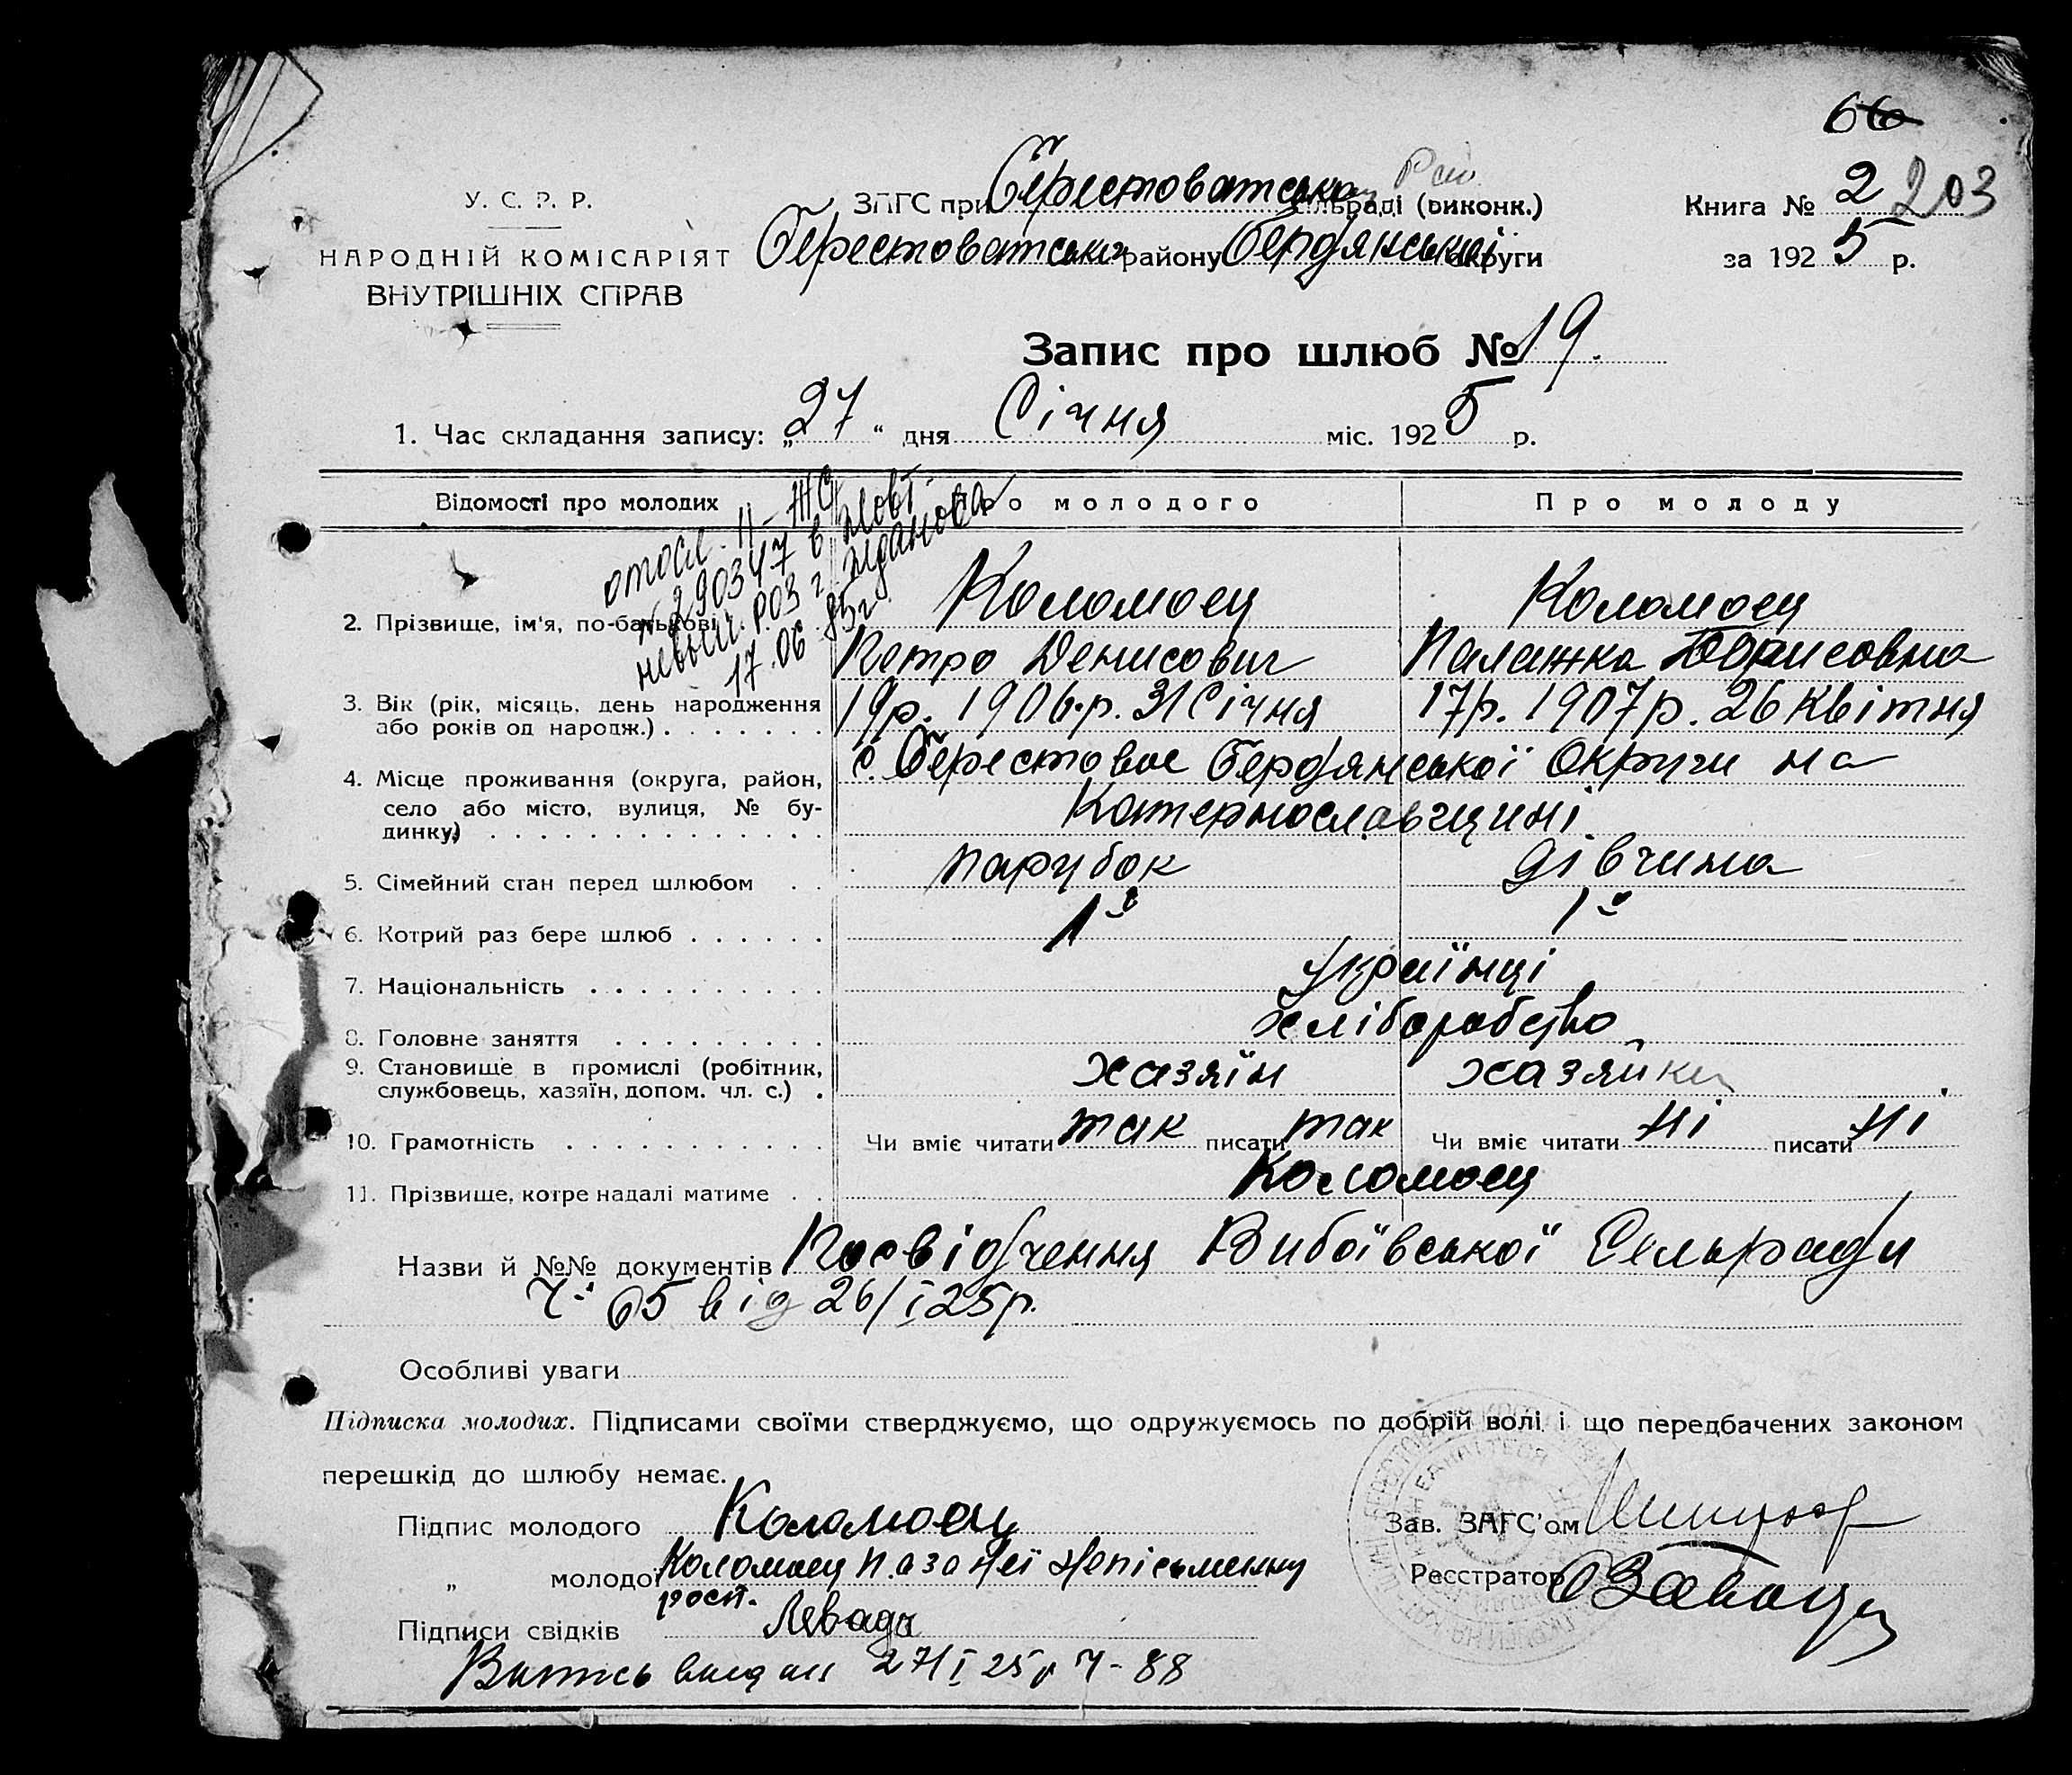 66
У. С. Р. Р.
НАРОДНІЙ КОМІСАРІЯТ
ВНУТРІШНІХ СПРАВ
ЗАГС при Берестоватському Рай сільраді (виконк.)
Берестоватськ району Бердянської округи
Книга № 2 203
за 1925 р.
Запис про шлюб № 19.
1. Час складання запису: „27“ дня Січня міс. 1925 р.
Відомості про молодих
Про молодого
Про молоду
отосл. II-ЖС
№ 290347 в Жовт
невый РОЗ г. Жданова
17.06 85г
2. Прізвище, ім'я, по-батькові
Коломоец
Петро Денисович
Коломоец
Палажка Борисовна
3. Вік (рік, місяць, день народження
або років од народж.)
19р. 1906.р. 31 Січня
17р. 1907р. 26 Квітня
4. Місце проживання (округа, район,
село або місто, вулиця, № бу-
динку)
с. Берестовое Бердянської Округи на
Катеринославщині.
5. Сімейний стан перед шлюбом
парубок
дівчина
6. Котрий раз бере шлюб
1й
1й
7. Національність
Українці
8. Головне заняття
хліборобство
9. Становище в промислі (робітник,
службовець, хазяїн, допом. чл. с.)
хазяїн
хазяйка
10. Грамотність
Чи вміє читати так писати так
Чи вміє читати ні писати ні
11. Прізвище, котре надалі матиме
Коломоец
Назви й №№ документів Посвідчення Вибоївської Сельради
Ч: 65 від 26/I 25р.
Особливі уваги
Підписка молодих. Підписами своїми стверджуємо, що одружуємось по добрій волі і що передбачених законом
перешкід до шлюбу немає.
Підпис молодого Коломоец
„ молодої Коломоец П. а за неї непісьменну
росп.
Підписи свідків Левада
Зав. ЗАГС'ом
Реєстратор
Витись видан 27/I 25р Ч-88